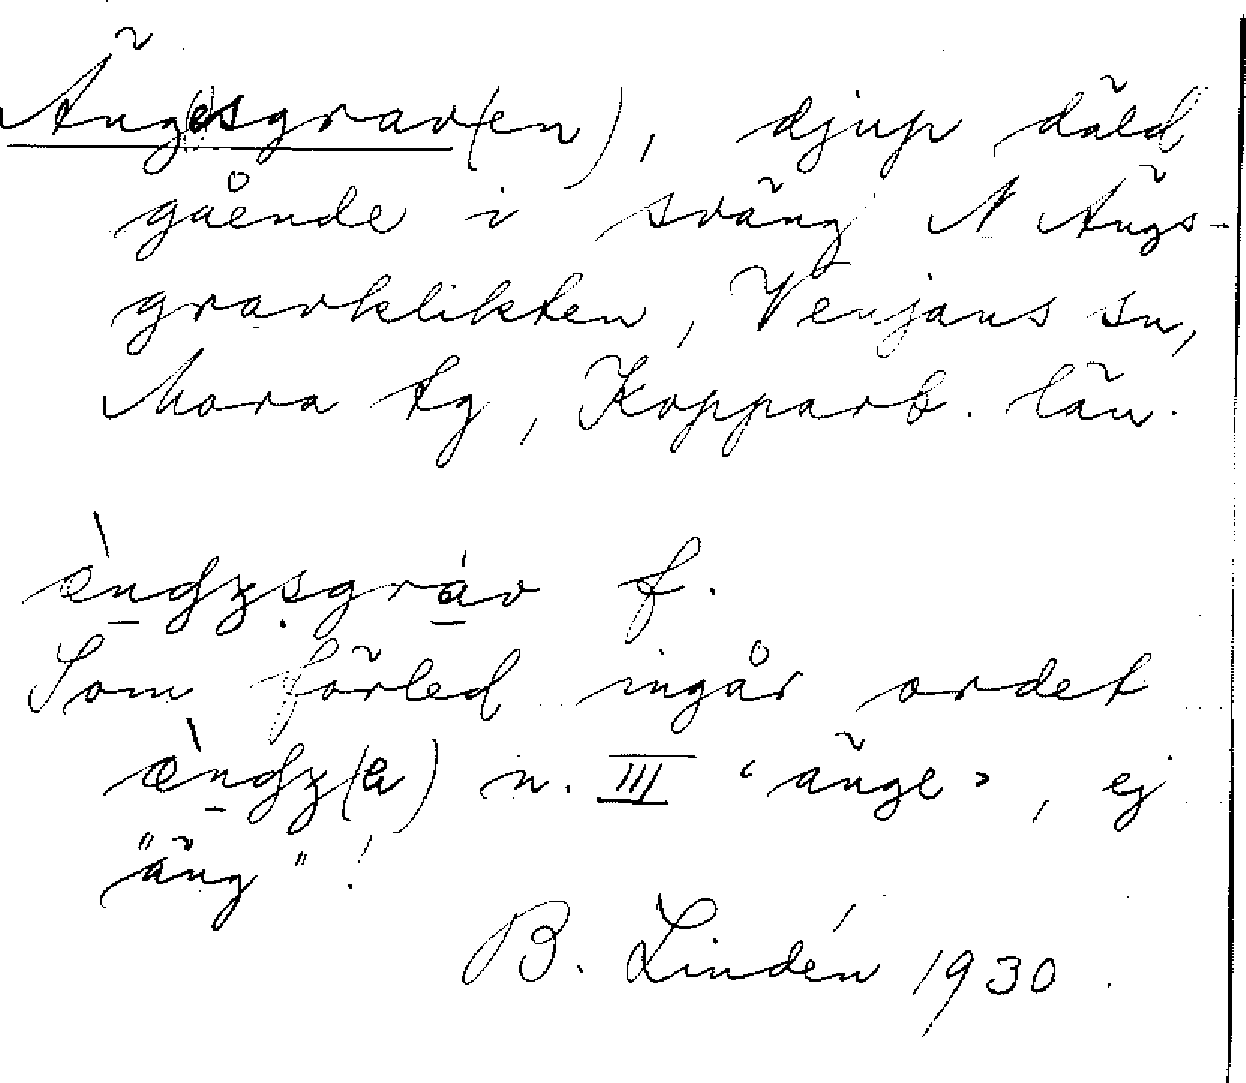 Äng(e)sgrav(en), djup däld
gående i sväng N Ängs-
gravklikten, Venjans sn,
Mora tg, Kopparb. län.
f.
Som förled ingår ordet
n. III ‘änge’, ej
"äng"!
B. Lindén 1930